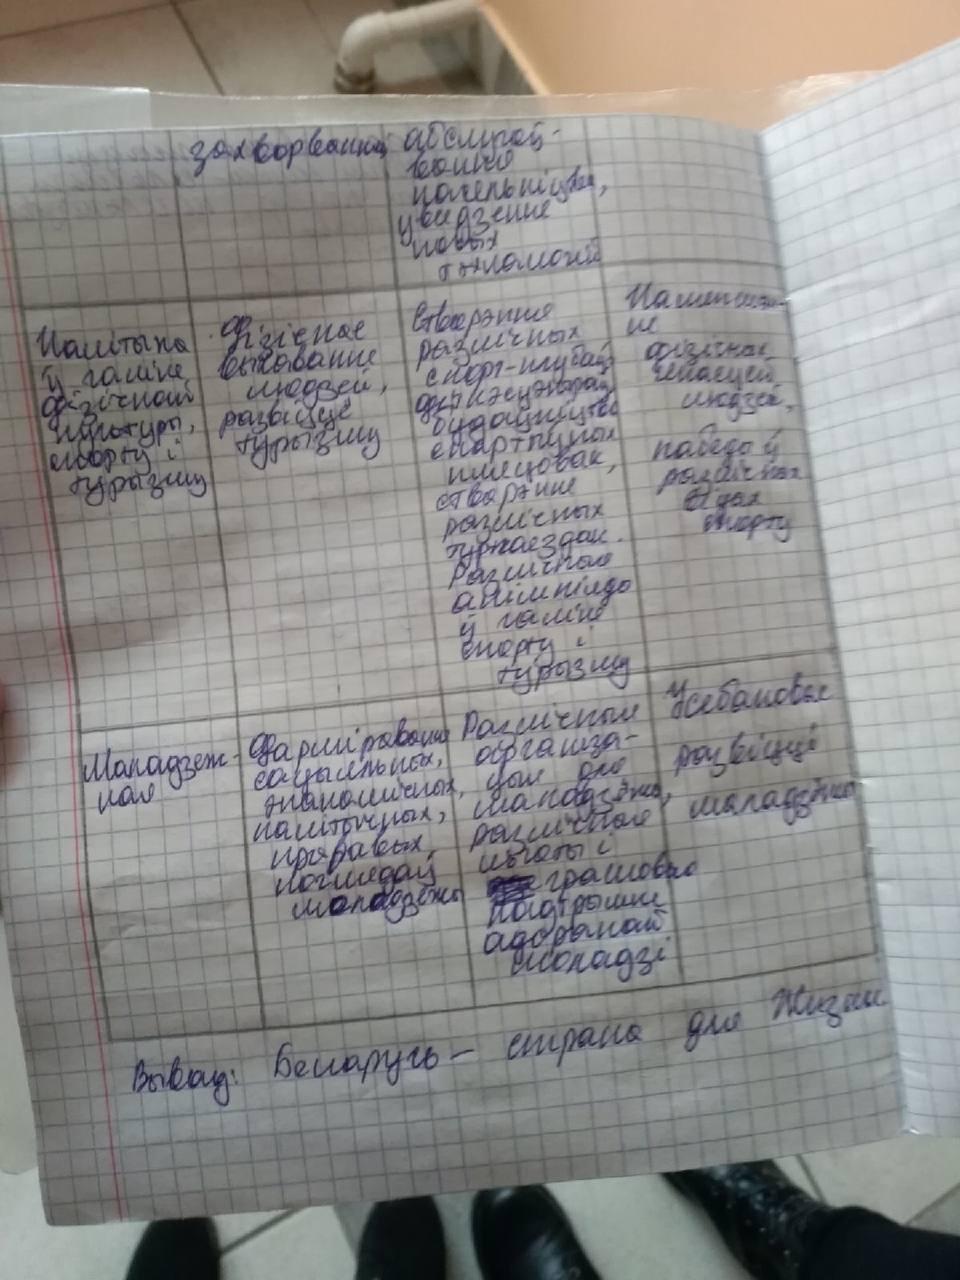 захворванняў
абслугоў-
вання
насельніцтва,
увядзенне
новых
тэхналогій
Палітыка
ў галіне
фізічнай
культуры,
спорту і
турызму
Фізічнае
выхаванне
людзей,
развіццё
турызму
Стварэнне
разлічных
спорт-клубаў
будаўніцтва
спартыўных
пляцовак,
стварэнне
разлічных
турпаездак.
Разлічные
алімпіяды
ў галіне
спорту і
турызму
Паляпшэн-
не
фізічных
якасцей
людзей,
победа ў
разлічных
відах
спорту
Маладзеж-
ная
Фарміраванне
сацыяльных,
эканамічных,
палітычных,
прававых
поглядаў
моладзежы
Разлічные
арганіза-
цыи для
маладзёжы,
разлічные
льготы і
грашовая
падтрымка
адоранай
моладзі
Усебаковае
развіццё
маладзёжы
Вывад: Беларусь - страна для Жизни